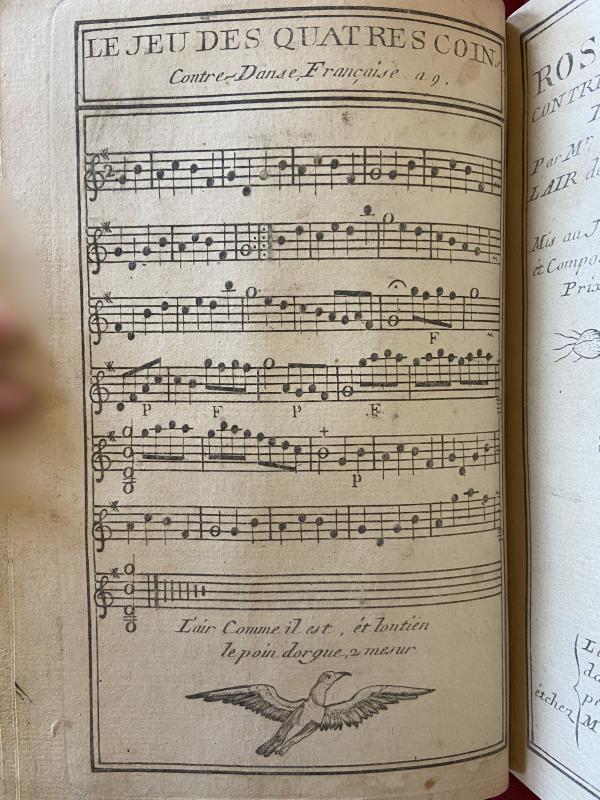 LE JEU DES QUATRES COINS
Contre-Danse Française a 9.
2
F
P F P F
P
L'air Comme il est, ét lontién
le poin dorgue, 2 mesur
ROS
CONTRE
Par Mr
LAIR de
Mis au J
ét Compos
Prix
étchez